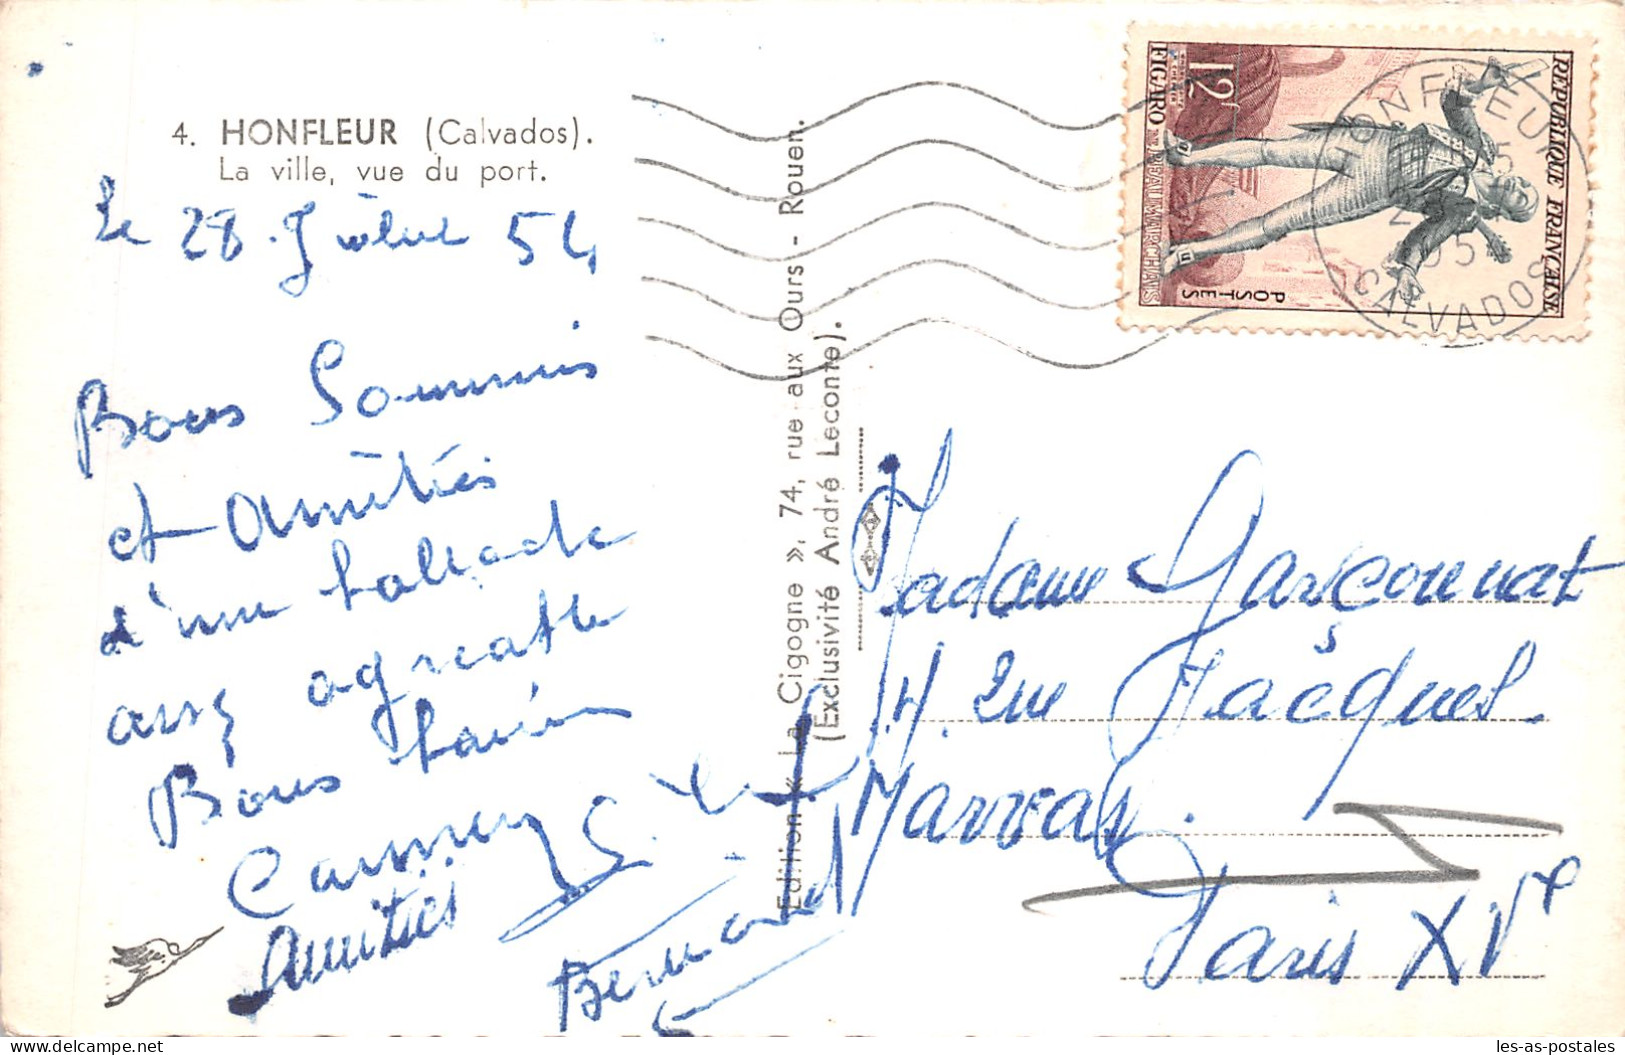 4. HONFLEUR (Calvados).
La ville, vue du port.
Le 28 Juillet 54
Bons Souvenirs
et Amitiés
d'une ballade
assez agréable
Bons baisers
Amitiés
Bernard
Edition « La Cigogne », 74, rue aux Ours - Rouen.
(Exclusivité André Leconte).
REPUBLIQUE FRANÇAISE
POSTES
12f
FIGARO DE BEAUMARCHAIS
HONFLEUR
CALVADOS
Madame Garçonnat
4. Rue Jacques
Paris XVe
les-as-postales